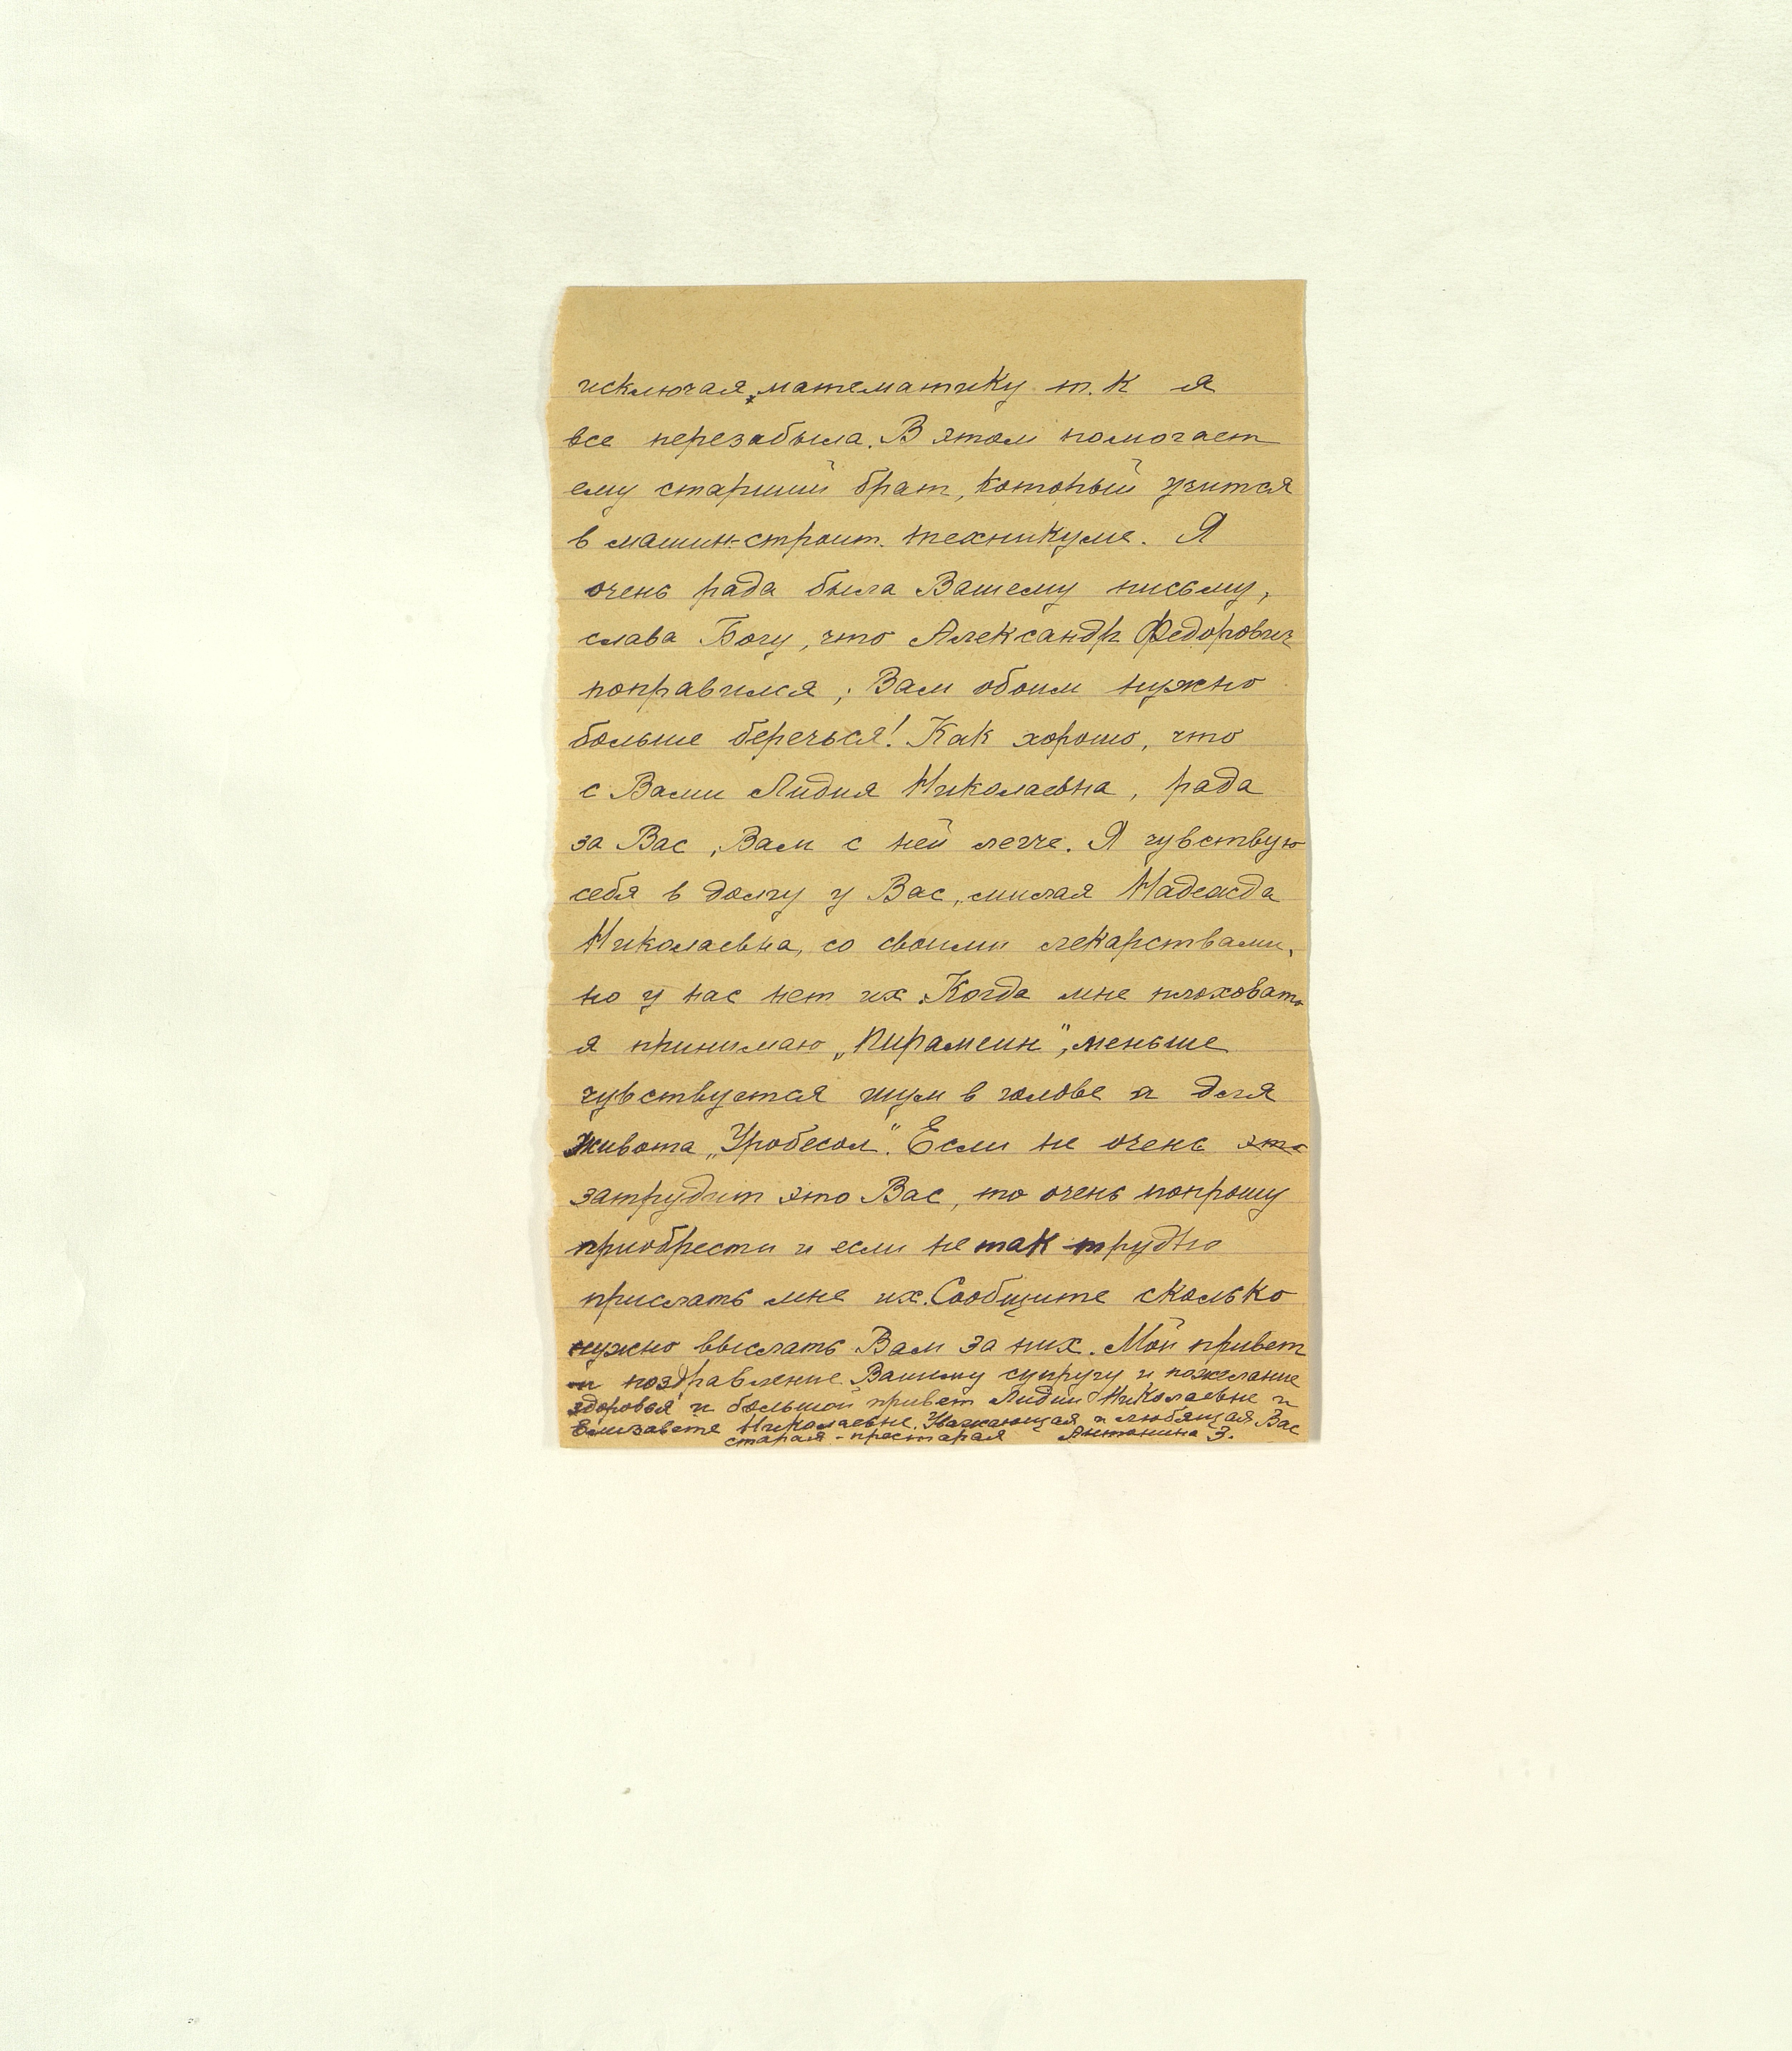 исключая, математику т.к я
все перезабыла. В этом помогает
ему старший брат, который учится
в машин-строит. техникуме. Я
очень рада была Вашему письму,
слава Богу, что Александр Федорович
поправился, Вам обоим нужно
больше беречься! Как хорошо, что
с Вами Лидия Николаевна, рада
за Вас, Вам с ней легче. Я чувствую
себя в долгу у Вас, милая Надежда
Николаевна, со своими лекарствами,
но у нас нет их. Когда мне плоховато
я принимаю „Пирамеин", меньше
чувствуется шум в голове и для
живота „Уробесал". Если не очень это
затруднит это Вас, то очень попрошу
приобрести и если не так трудно
прислать мне их. Сообщите сколько
нужно выслать Вам за них. Мой привет
и поздравление Вашему супругу и пожелание
здоровья и большой привет Лидии Николаевне и
Елизавете Николаевне. Уважающая и любящая Вас
старая-престарая Антонина З.